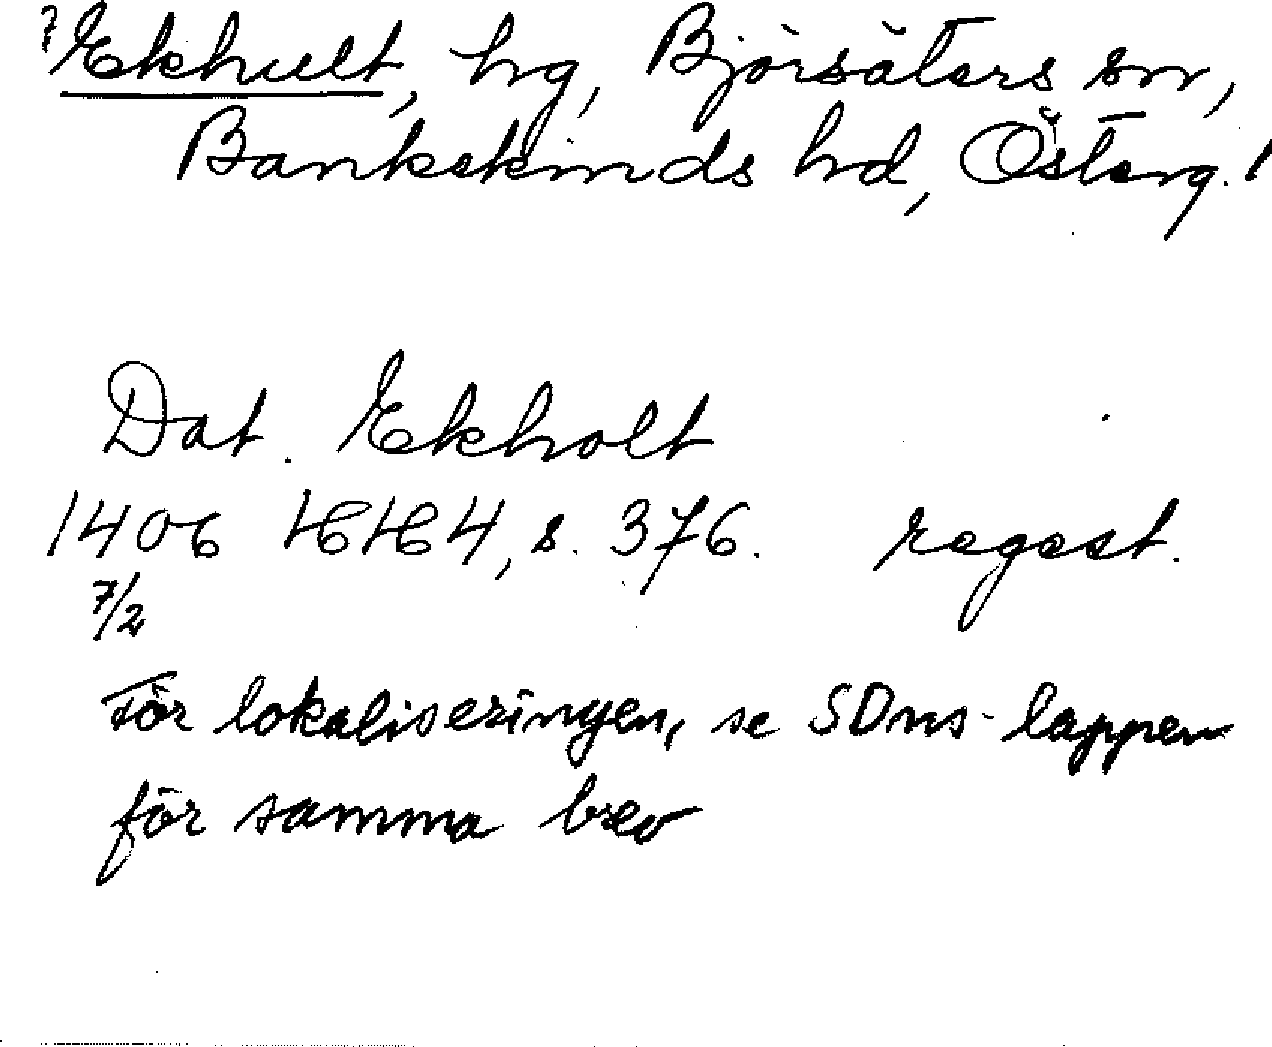 ? Ekhult, hg, Björsäters sn,
Bankekinds hd, Österg. l
Dat. Ekholt
1406 HH 4, s. 376. regest.
7/2
För lokaliseringen, se SDns-lappen
för samma brev